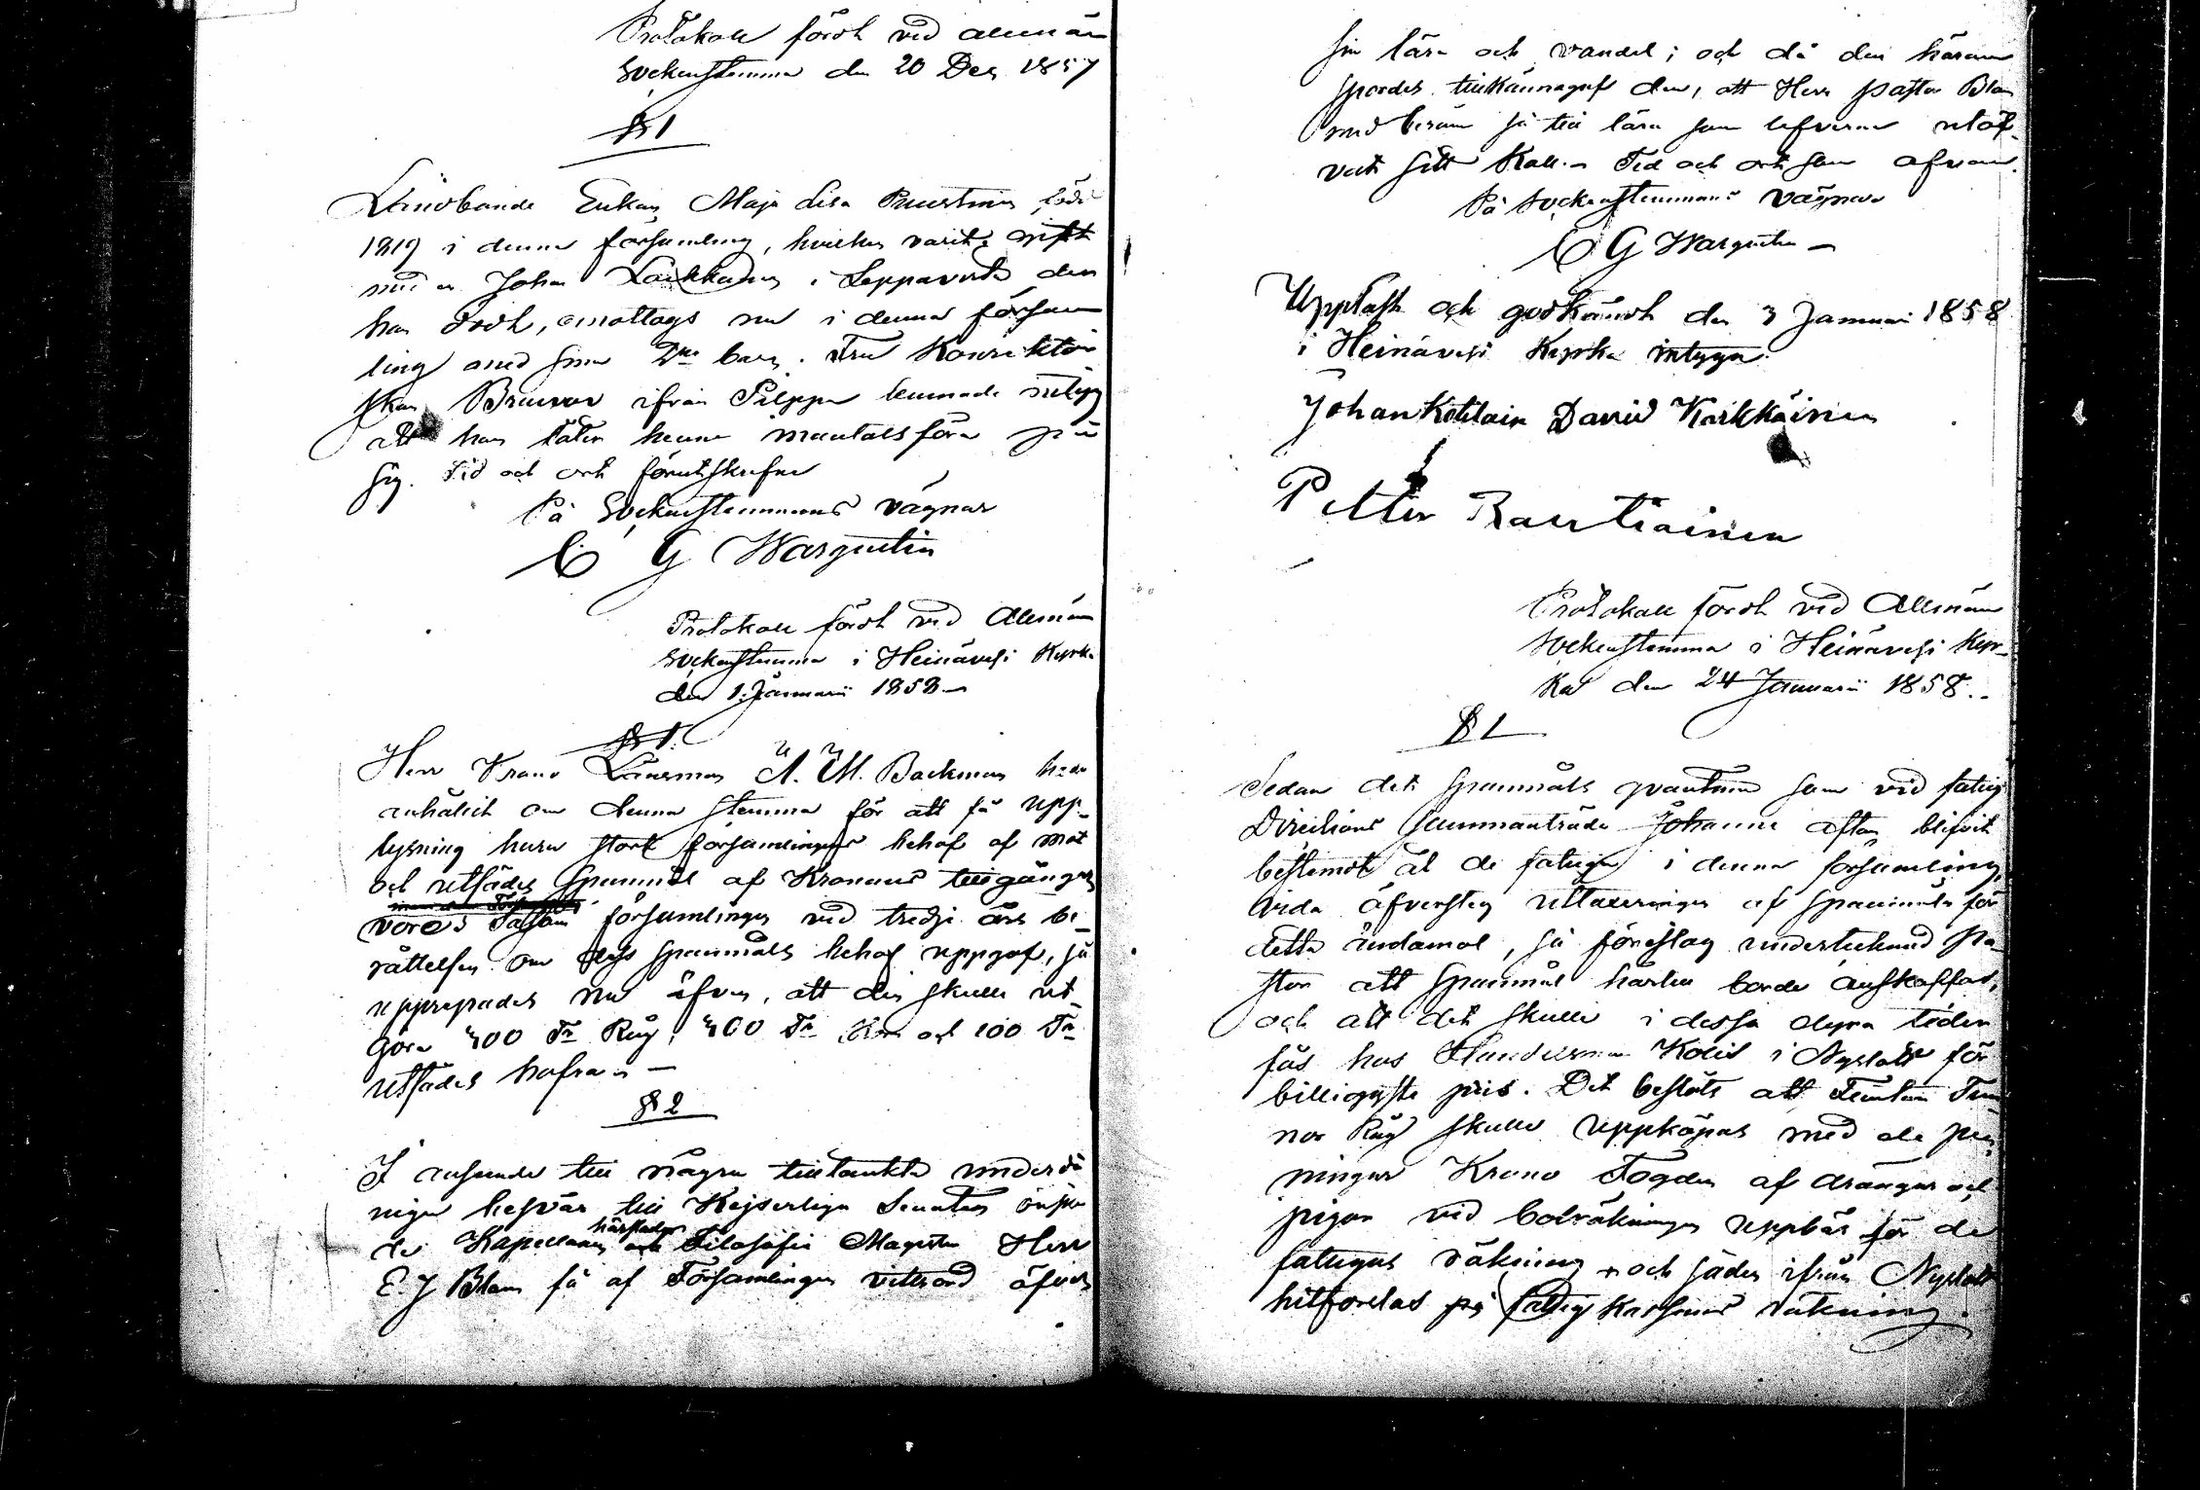 Protokoll fördt vid allmän
Sockenstemma den 20 Dec 1857
§ 1
Landbonde Enkan Maja Lisa Puustinen född
1819 i denna församling, hvilken varit gift
med en Johan Laukkanen i Leppävirta den
han dödt, emottogs nu i denna försam
ling med sina 2ne barn. Fru Konrektor
skan Brunou ifrån Pilppa lemnade intyg
att hon låter henne mantalsföra på
sig. Tid och ort förutskrifne
På Sockenstemmans vägnar
C G Wargentin
Protokoll fördt vid Allmän
Sockenstemma i Heinävesi Kyrka
den 1. Januarii 1858
§ 1.
Herr Krono Länsman A. M. Backman hade
anhållit om denna stemma för att få upp-
lysning huru stort församlingens behof af mat
och utsädes spannmål af Kronans tillgångar
vore. Såsom församlingen vid tredje års be-
rättelsen om dess spannmåls behof uppgof, så
upprepades nu äfven, att den skulle ut-
göra 400 Tr Råg, 400 Tr Korn och 100 Tr
utsädes hafra.
§ 2
I anseende till några tilltänkta underdå
niga besvär till Kejserliga Senaten önska
de Kapellanen härstädes och Filosofie Magister Herr
E. J Blom få af Församlingen vitsord öfver
sin lära och vandel; och då den härom
spordes tillkännagaf den, att Herr Pastor Blom
med beröm så till lära som lefverne utöf-
vat sitt Kall. Tid och ort som ofvan.
På Sockenstemmans vägnar
C G Wargentin
Uppläst och godkändt den 3 Januari 1858
i Heinävesi Kyrka intyga
Johan Kotilain David Karkkäinen
Petter Rautiainen
Protokoll fördt vid Allmän
Sockenstemma i Heinävesi Kyr-
ka den 24 Januarii 1858.
§ 1
Sedan det spannmåls quantum som vid fattig
Directions sammanträde Johanne afton blifvit
bestemdt åt de fattiga i denna församling
vida öfversteg uttaxeringen af spannmål för
detta ändamål, så föreslog undertecknad Pa-
stor att spannmål härtill borde anskaffas,
och att det skulle i dessa dyra tider
fås hos Handelsman Kolis i Nyslott för
billigaste pris. Det beslöts att Femton Tun
nor Råg skulle uppköpas med de pen
ningar Krono Fogden af drängar och
pigor vid boräkningen uppbär för de
fattigas räkning och sädes ifrån Nyslott
hitforslas på fattig Kassans räkning.